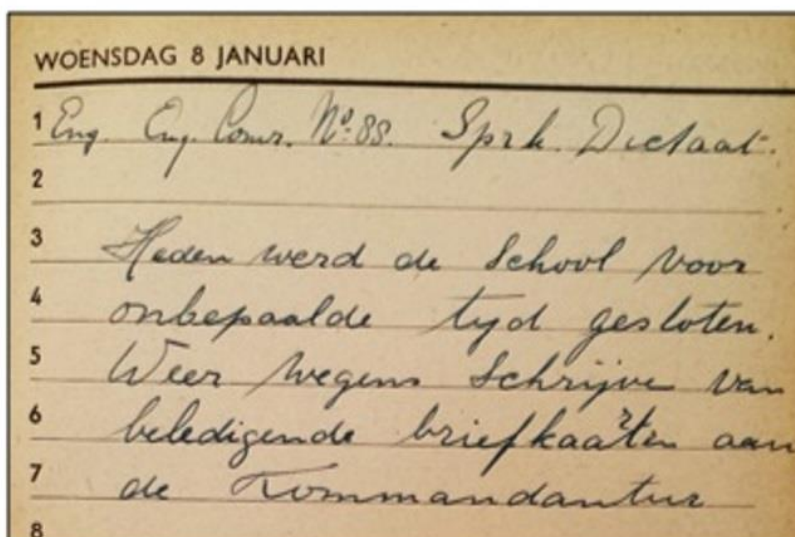 WOENSDAG 8 JANUARI
1 Eng. Eng. Conv. Nº. 88. Sprk. Dictaat.
2
3 Heden werd de school voor
4 onbepaalde tijd gesloten.
5 Weer wegens schrijven van
6 beledigende briefkaarten aan
7 de Kommandantur
8